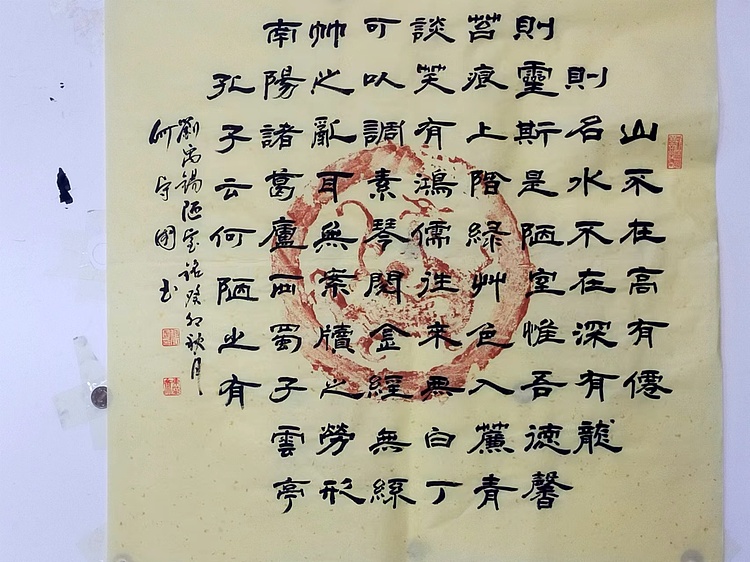 山不在高有僊
則名水不在深有龍
則靈斯是陋室惟吾德馨
苔痕上階綠艸色入簾青
談笑有鴻儒往來无白丁
可以調素琴閱金經無絲
竹之亂耳無案牘之勞形
南陽諸葛廬西蜀子雲亭
孔子云何陋之有
劉禹錫陋室銘癸卯秋月
何守國书